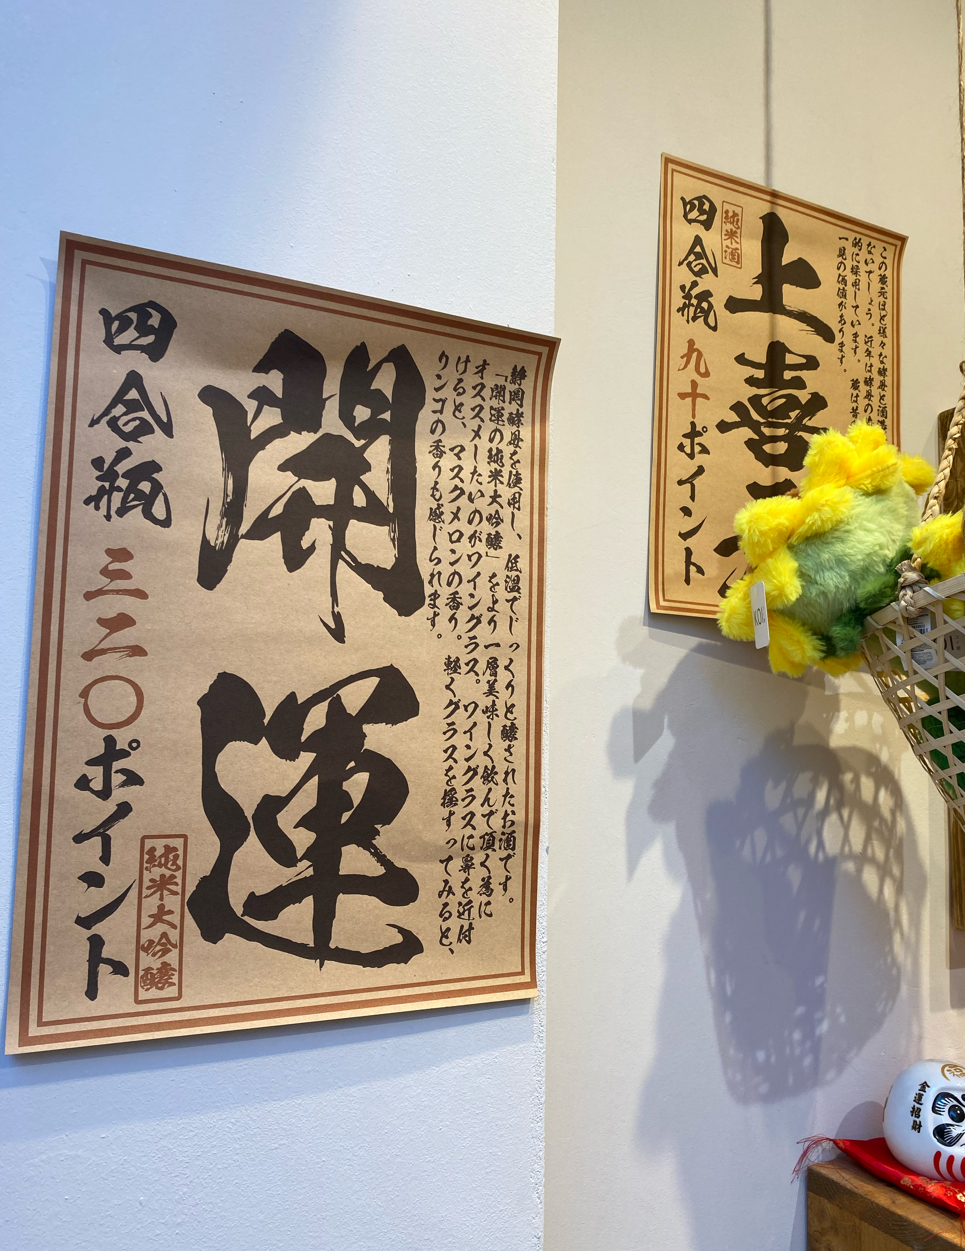 静岡酵母を使用し、低温でじっくりと醸されたお酒です。
「開運の純米大吟醸」をより一層美味しく飲んで頂く為に
オススメしたいのがワイングラス。ワイングラスに鼻を近付
けると、マスクメロンの香り。軽くグラスを揺すってみると、
リンゴの香りも感じられます。
開運
純米大吟醸
四合瓶 三二〇ポイント
この蔵元ほど様々な酵母と酒
ないでしょう。近年は酵母の
的に採用しています。蔵は昔
一見の価値があります。
上喜
純米酒
四合瓶 九十ポイント
KOI
金運招財